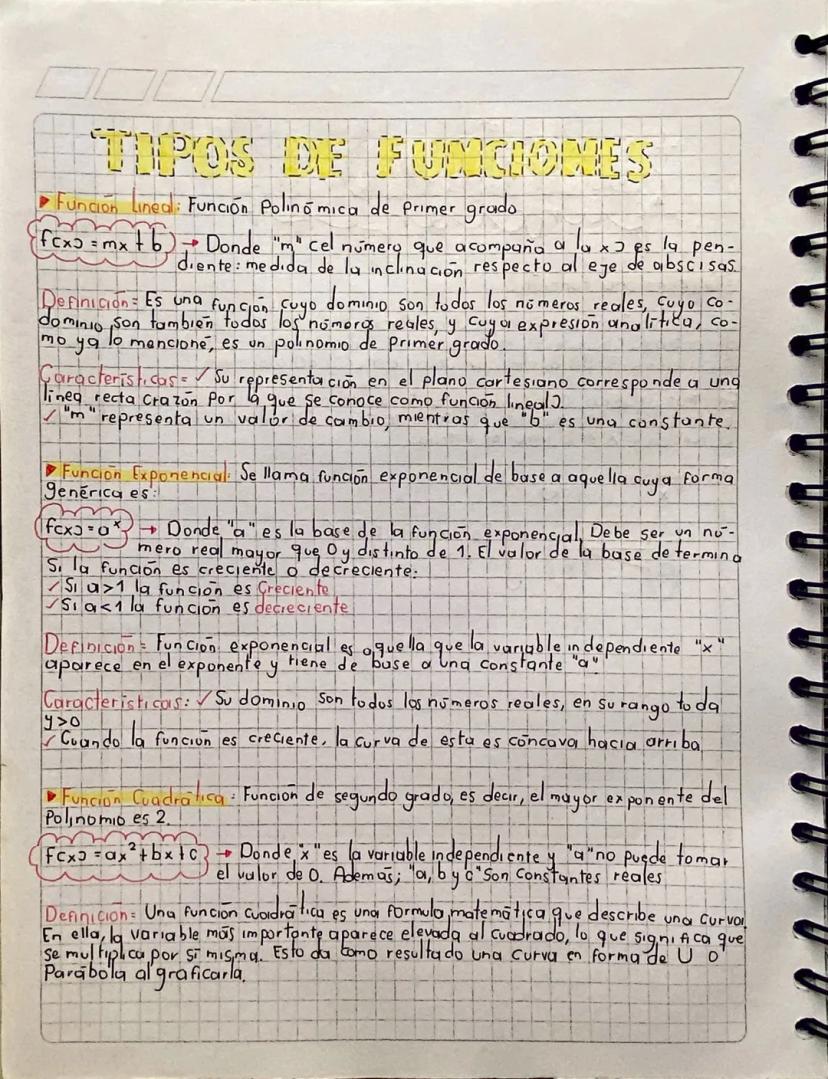 TIPOS DE FUNCIONES
▶ Función Lineal: Función Polinómica de Primer grado
f(x) = mx + b → Donde "m" (el número que acompaña a la x) es la pen-
diente: medida de la inclinación respecto al eje de abscisas.
Definición: Es una función cuyo dominio son todos los números reales, cuyo co-
dominio son también todos los números reales, y cuya expresión analítica, co-
mo ya lo mencioné, es un polinomio de Primer grado.
Características: ✓ Su representación en el plano cartesiano corresponde a una
línea recta (razón por la que se conoce como función lineal).
✓ "m" representa un valor de cambio, mientras que "b" es una constante.
▶ Función Exponencial: Se llama función exponencial de base a aquella cuya forma
genérica es:
f(x) = aˣ → Donde "a" es la base de la función exponencial, Debe ser un nú-
mero real mayor que 0 y distinto de 1. El valor de la base determina
Si la función es creciente o decreciente:
✓ Si a>1 la función es Creciente
✓ Si a<1 la función es decreciente
Definición: Función exponencial es aquella que la variable independiente "x"
aparece en el exponente y tiene de base a una constante "a"
Características: ✓ Su dominio son todos los números reales, en su rango toda
y>0
✓ Cuando la función es creciente, la curva de esta es cóncava hacia arriba
▶ Función Cuadrática: Función de segundo grado, es decir, el mayor exponente del
Polinomio es 2.
f(x) = ax² + bx + c → Donde "x" es la variable independiente y "a" no puede tomar
el valor de 0. Además; "a, b y c" Son Constantes reales
Definición: Una función cuadrática es una formula matemática que describe una curva.
En ella, la variable más importante aparece elevada al cuadrado, lo que significa que
se multiplica por sí misma. Esto da como resultado una curva en forma de U o
Parábola al graficarla.